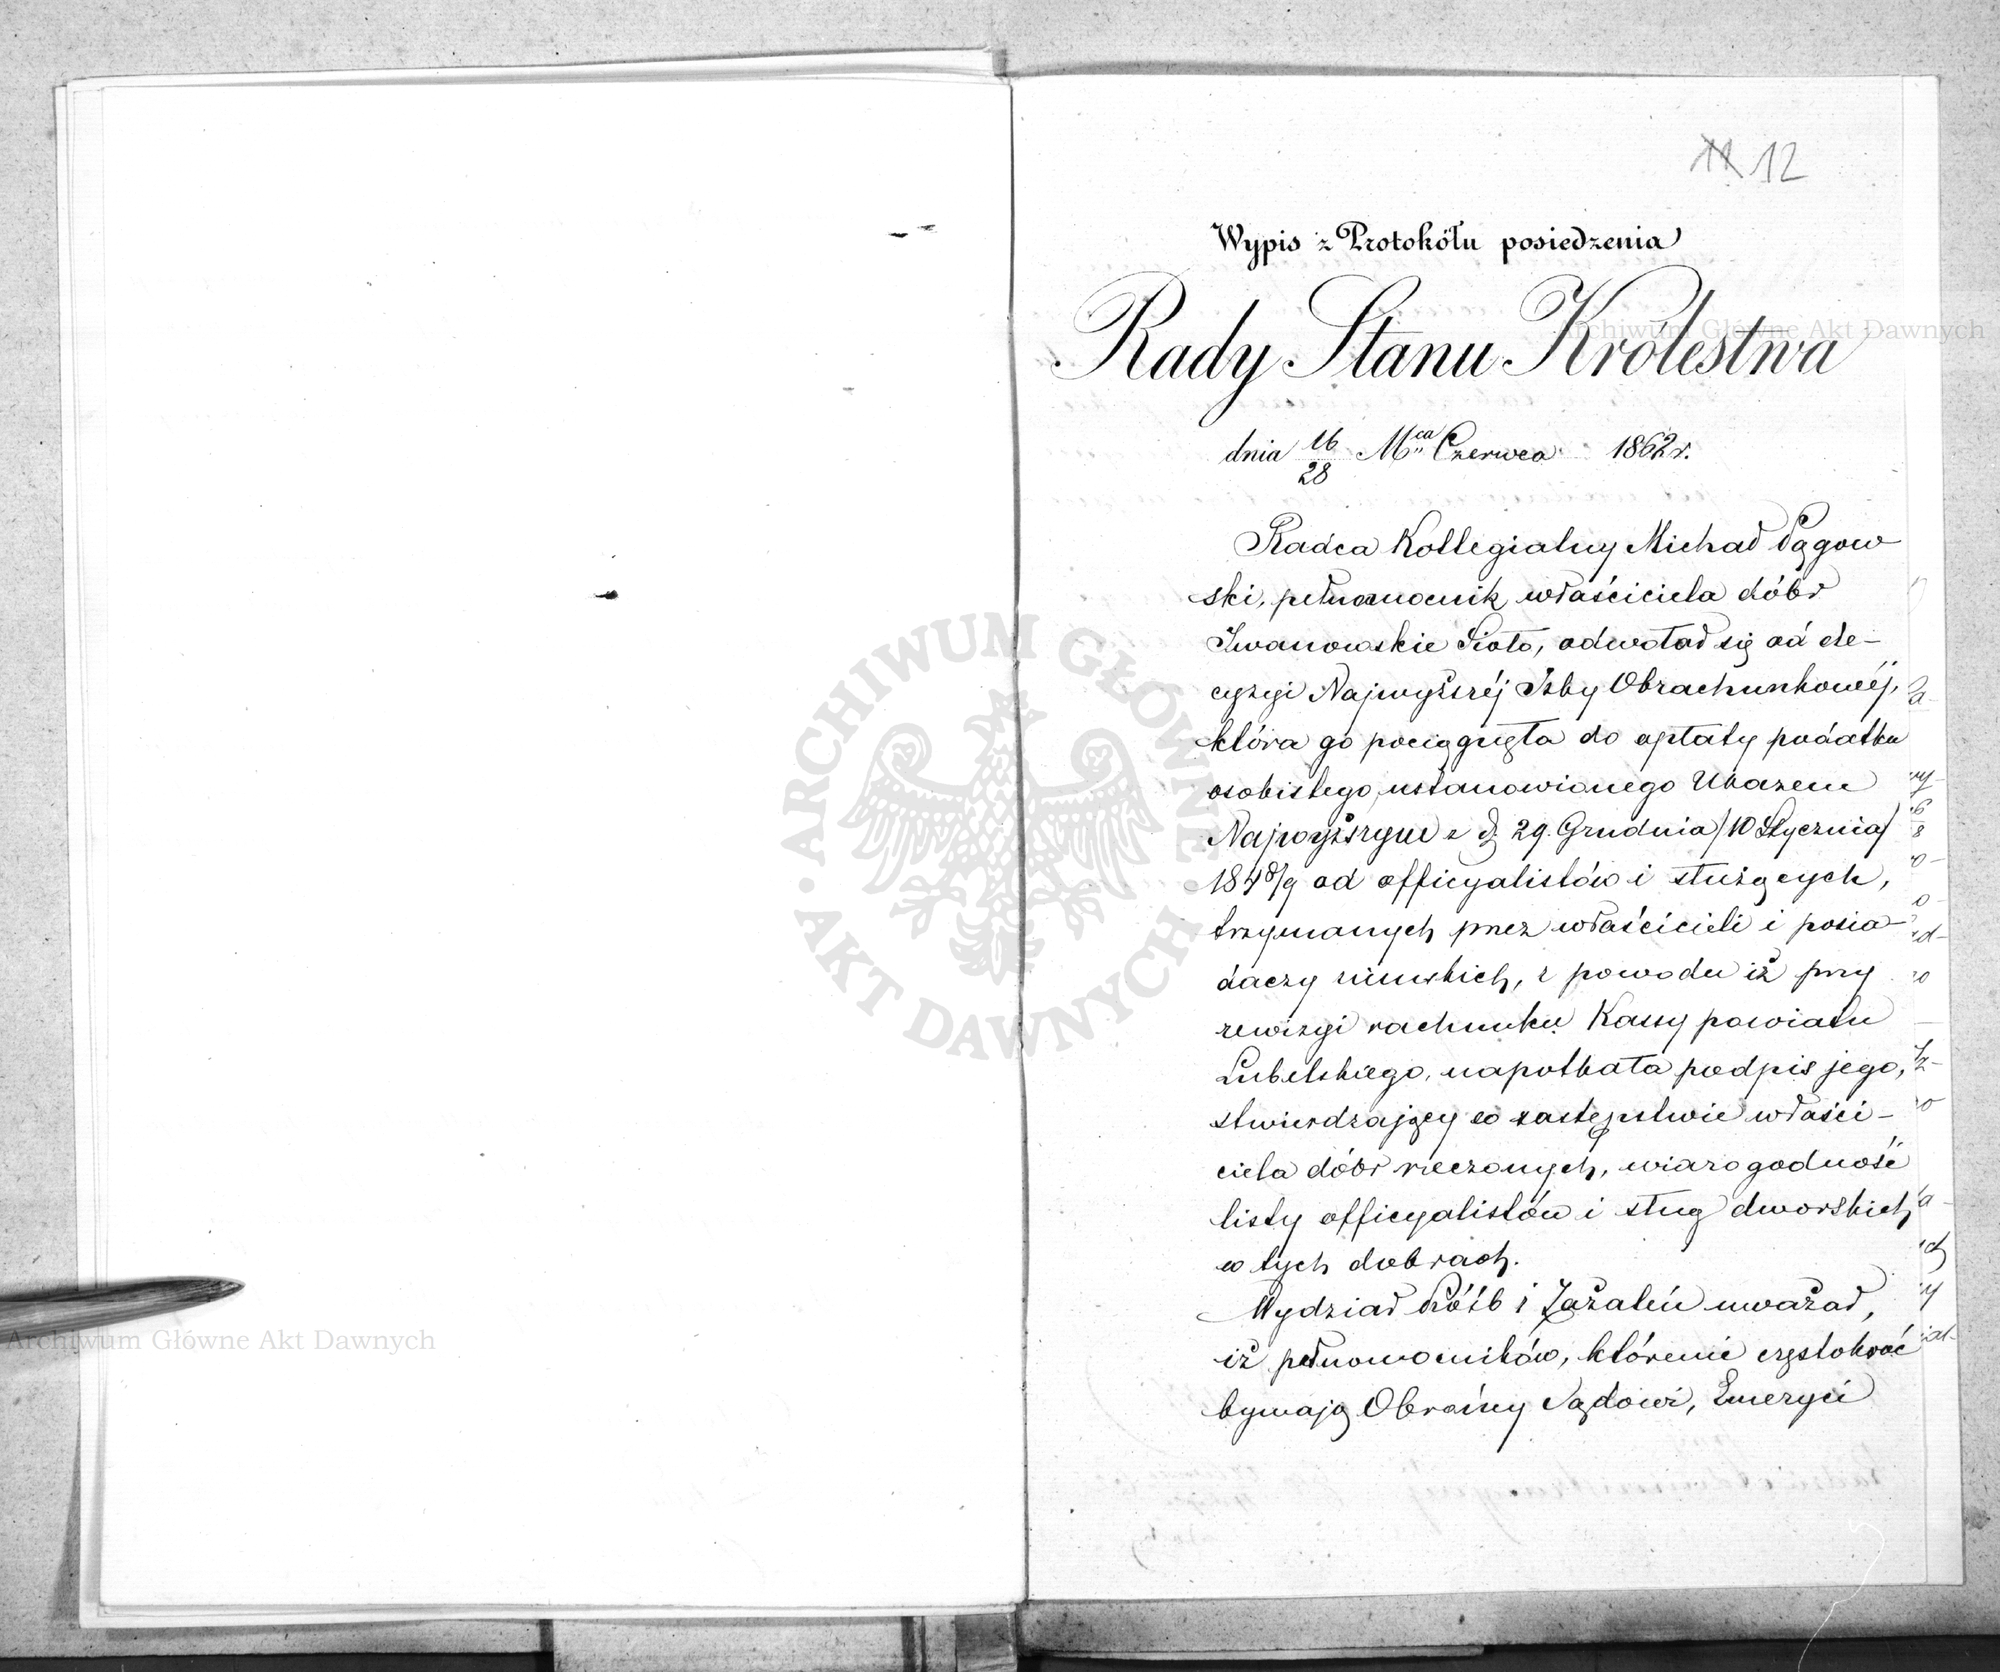 11 12
Wypis z Protokółu posiedzenia
Rady Stanu Królestwa
dnia 16/28 Mca Czerwca 1862 r.
Radca Kollegialny Michał Pągow
ski, pełnomocnik właściciela dóbr
Iwanowskie Sioło, odwołał się od de-
cyzyi Najwyższéj Izby Obrachunkowéj,
która go pociągnęła do opłaty podatku
osobistego, ustanowionego Ukazem
Najwyższym z d. 29. Grudnia /10 Stycznia/
1848/9 od officyalistów i służących,
trzymanych przez właścicieli i posia-
daczy ziemskich, z powodu iż przy
rewizyi rachunku Kassy powiatu
Lubelskiego, napotkała podpis jego,
stwierdzający w zastępstwie właści-
ciela dóbr rzeczonych, wiarogodność
listy officyalistów i sług dworskich
w tych dobrach.
Wydział Próśb i Zażaleń uważał,
iż pełnomocników, któremi częstokroć
bywają Obrońcy Sądowi, Emeryci
Archiwum Główne Akt Dawnych
Archiwum Główne Akt Dawnych
ARCHIWUM GŁÓWNE AKT DAWNYCH